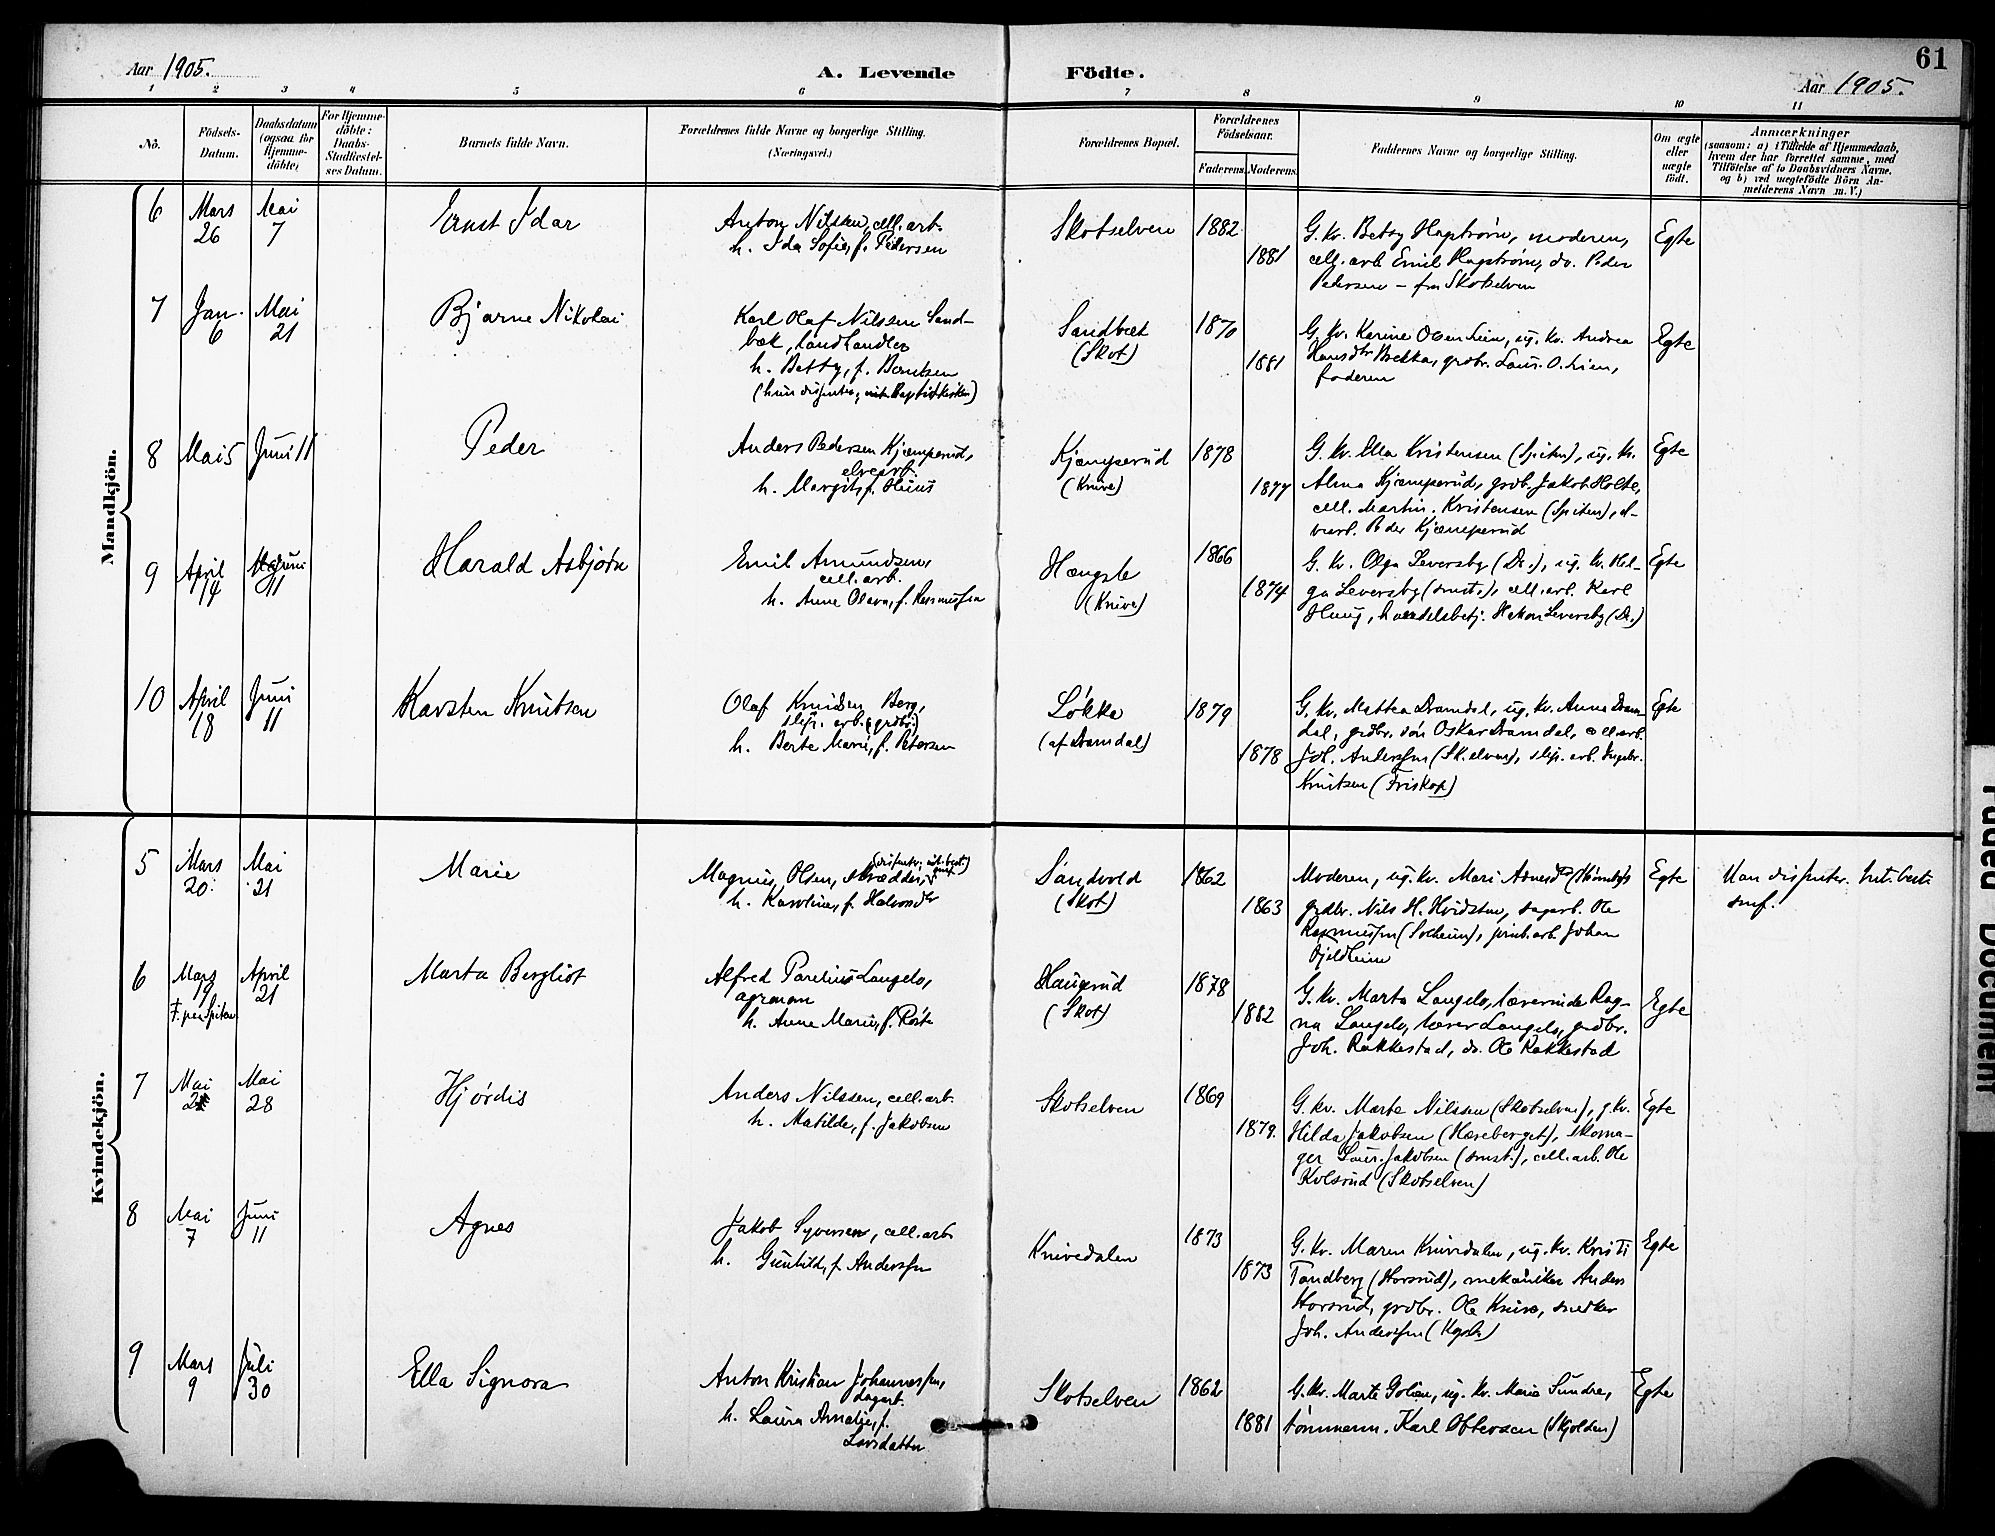 61
Aar 1905.
A. Levende Födte.
Aar 1905.
1 2 3 4 5 6 7 8 9 10 11
No.
Födsels-
Datum.
Daabsdatum
(ogsaa för
Hjemme-
döbte)
For Hjemme-
döbte:
Daabs-
Stadfæstel-
ses Datum.
Barnets fulde Navn.
Forældrenes fulde Navne og borgerlige Stilling.
(Næringsvei.)
Forældrenes Bopæl.
Forældrenes
Födselsaar.
Faderens. Moderens.
Faddernes Navne og borgerlige Stilling.
Om ægte
eller
uægte
födt.
Anmærkninger
(saasom: a) i Tilfælde af Hjemmedaab,
hvem der har forrettet samme, med
Tilföielse af to Daabsvidners Navne.
og b) ved uegtefödte Börn An-
melderens Navn m. V.)
Mandkjön.
6 Mars 26 Mai 7
Ernst Idar
Anton Nilssen, cell.arb.
h. Ida Sofie, f. Pedersen
Skotselven
1882
1881
G. kv. Betsy Hagstrøm, moderen,
cell. arb Emil Hagstrøm, do. Peder
Pedersen – fra Skotselven
Egte
7 Jan. 6 Mai 21
Bjarne Nikolai
Karl Olaf Nilssen Sand-
bæk, landhandler
h. Betty, f. Berntsen
Sandbæk
(Skot)
1870
1881
G. kv. Karine Olsen Lien, ug. kv. Andrea
Hansdtr Bekka, grdbr. Laur. O. Lien,
faderen
Egte
8 Mai 5 Juni 11
Peder
Anders Pedersen Kjæmperud,
elvearb.
h. Margit, f.
Kjæmperud
(Knive)
1878
1877
G. kv. Ella Kristensen (Spiten), ug. kv.
Alma Kjæmperud, grdb. Jakob Holte,
cell. Martin Kristensen (Spiten), el-
vearb. Peder Kjæmperud
Egte
9 April 14 Juni 11
Harald Asbjørn
Emil Amundsen,
cell. arb.
h. Anne Olava, f. Rasmussen
Hængsle
(Knive)
1866
1874
G. kv. Olga Leversby (Dr.), ug. kv. Hel-
ga Leversby (smst.), cell. arb. Karl
Haug, handelsbetj. Hakon Leversby (Dr.)
Egte
10 April 18 Juni 11
Karsten Knutsen
Olaf Knudsen Berg,
slip. arb. (grdbr.)
h. Berte Marie, f. Petersen
Løkka
(af Dramdal)
1879
1878
G. kv. Mattea Dramdal, ug. kv. Anna Dram-
dal, grdbr. søn Oskar Dramdal, cell.arb.
Joh. Anderssen (Sk.elven), slip. arb. Ingebr.
Knutsen (Friskop)
Egte
Kvindekjön.
5 Mars 20 Mai 21
Marie
Magnus Olsen, skrædder,
h. Karoline, f. Halvorsdtr
Sandvold
(Skot)
1862
1863
Moderen, ug. kv. Mari
grdbr. Nils H. Hvidsten, sagarb. Ole
Rasmussen (Solheim), Johan
Fjeldheim
Egte
Man dissenter. ut. best.
smf.
6 Mars 9 April 21
Marta Bergliot
Alfred Parelius Langelo,
agronom
h. Anne Marie, f. Røste
Haugerud
(Skot)
1878
1882
G. kv. Marta Langelo, lærerinde Rag-
na Langelo, lærer Langelo, grdbr.
Joh. Rakkestad, do. Ole Rakkestad
Egte
7 Mai 2 Mai 28
Hjørdis
Anders Nilssen, cell.arb.
h. Matilde, f. Jakobsen
Skotselven
1869
1879
G. kv. Marte Nilssen (Skotselven), g. kv.
Hilda Jakobsen (Hareberget), skoma-
ger Laur. Jakobsen (smst.), cell.arb. Ole
Kolsrud (Skotselven)
Egte
8 Mai 7 Juni 11
Agnes
Jakob Syversen, cell.arb
h. Gunhild, f. Anderssen
Knivedalen
1873
1873
G. kv. Maren Knivedalen, ug. kv. Kristi
Tandberg (Horsrud), mekaniker Anders
Horsrud, grdbr. Ole Knive, snedker
Joh. Anderssen
Egte
9 Mars 9 Juli 30
Ella Signora
Anton Kristian Johannessen,
dagarb.
h. Laura Amalie, f.
Larsdatter
Skotselven
1862
1881
G. kv. Marte Golien, ug. kv. Maria Sundre,
tømmerm. Karl Oftersen (Skjolden)
Egte
Faded Document